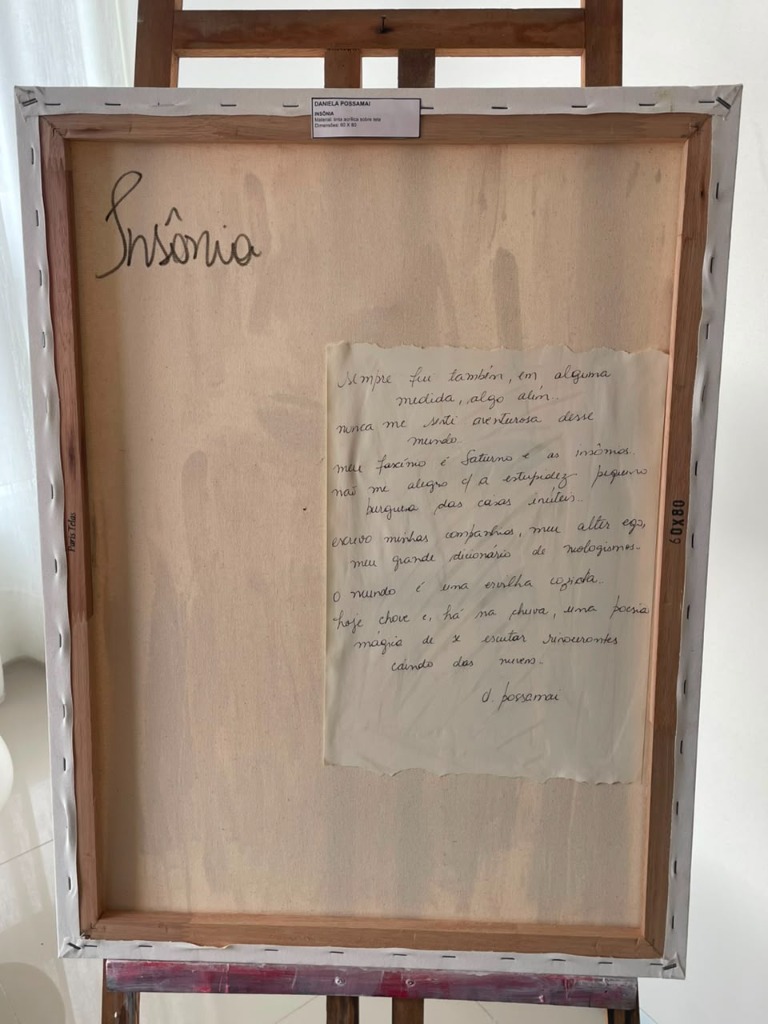 DANIELA POSSAMAI
INSÔNIA
Material: tinta acrílica sobre tela
Dimensões: 60 X 80
Insônia
sempre fui também, em alguma
medida, algo além.
nunca me senti aventurosa desse
mundo.
meu fascínio é Saturno e as insônias.
não me alegro c/ a estupidez pequeno
burguesa das casas inúteis.
escrevo minhas companhias, meu alter ego,
meu grande dicionário de neologismos.
o mundo é uma ervilha cozida.
hoje chove e, há na chuva, uma poesia
mágica de se escutar rinocerontes
caindo das nuvens.
d. possamai
60X80